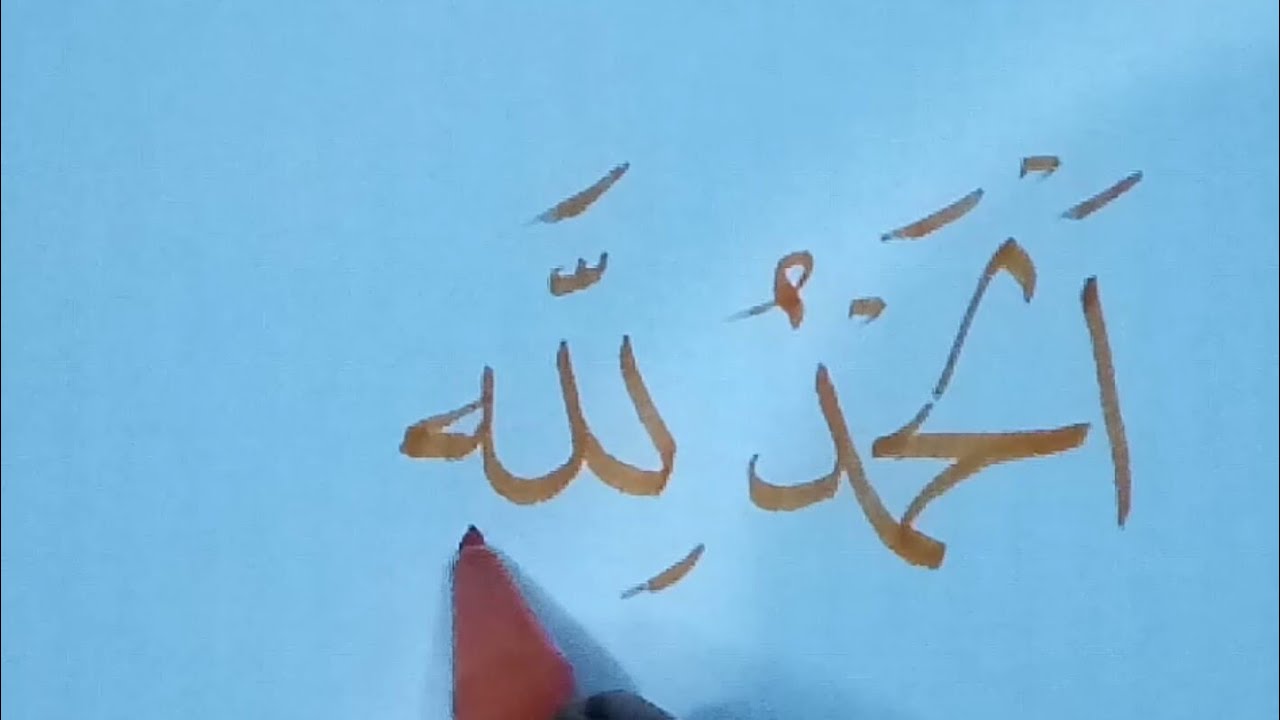 اَلْحَمْدُ لِلَّه